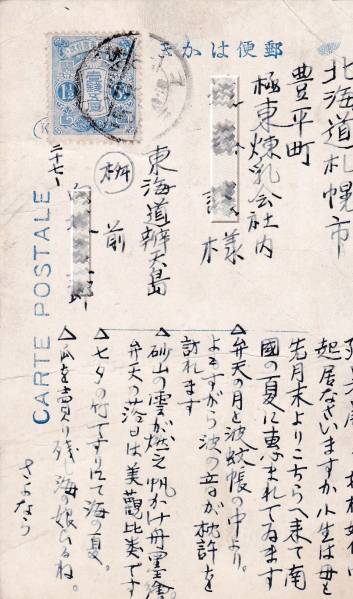 郵便はかき
北海道札幌市
豊平町
極東煉乳会社内
様
東海道辨天島
前
二十七、
CARTE POSTALE
起居なさいますか小生は母と
先月末よりこちらへ来て南
国の夏に恵まれてゐます
△弁天の月と波蚊帳の中より。
よもすがら波の音が枕許を
訪れます
△砂山の雲が燃え帆かけ舟墨繪。
弁天の落日は美觀比类です
△七夕の竹ですり出て海の夏。
△瓜を賣り残し海の娘ひるね。
さよなら